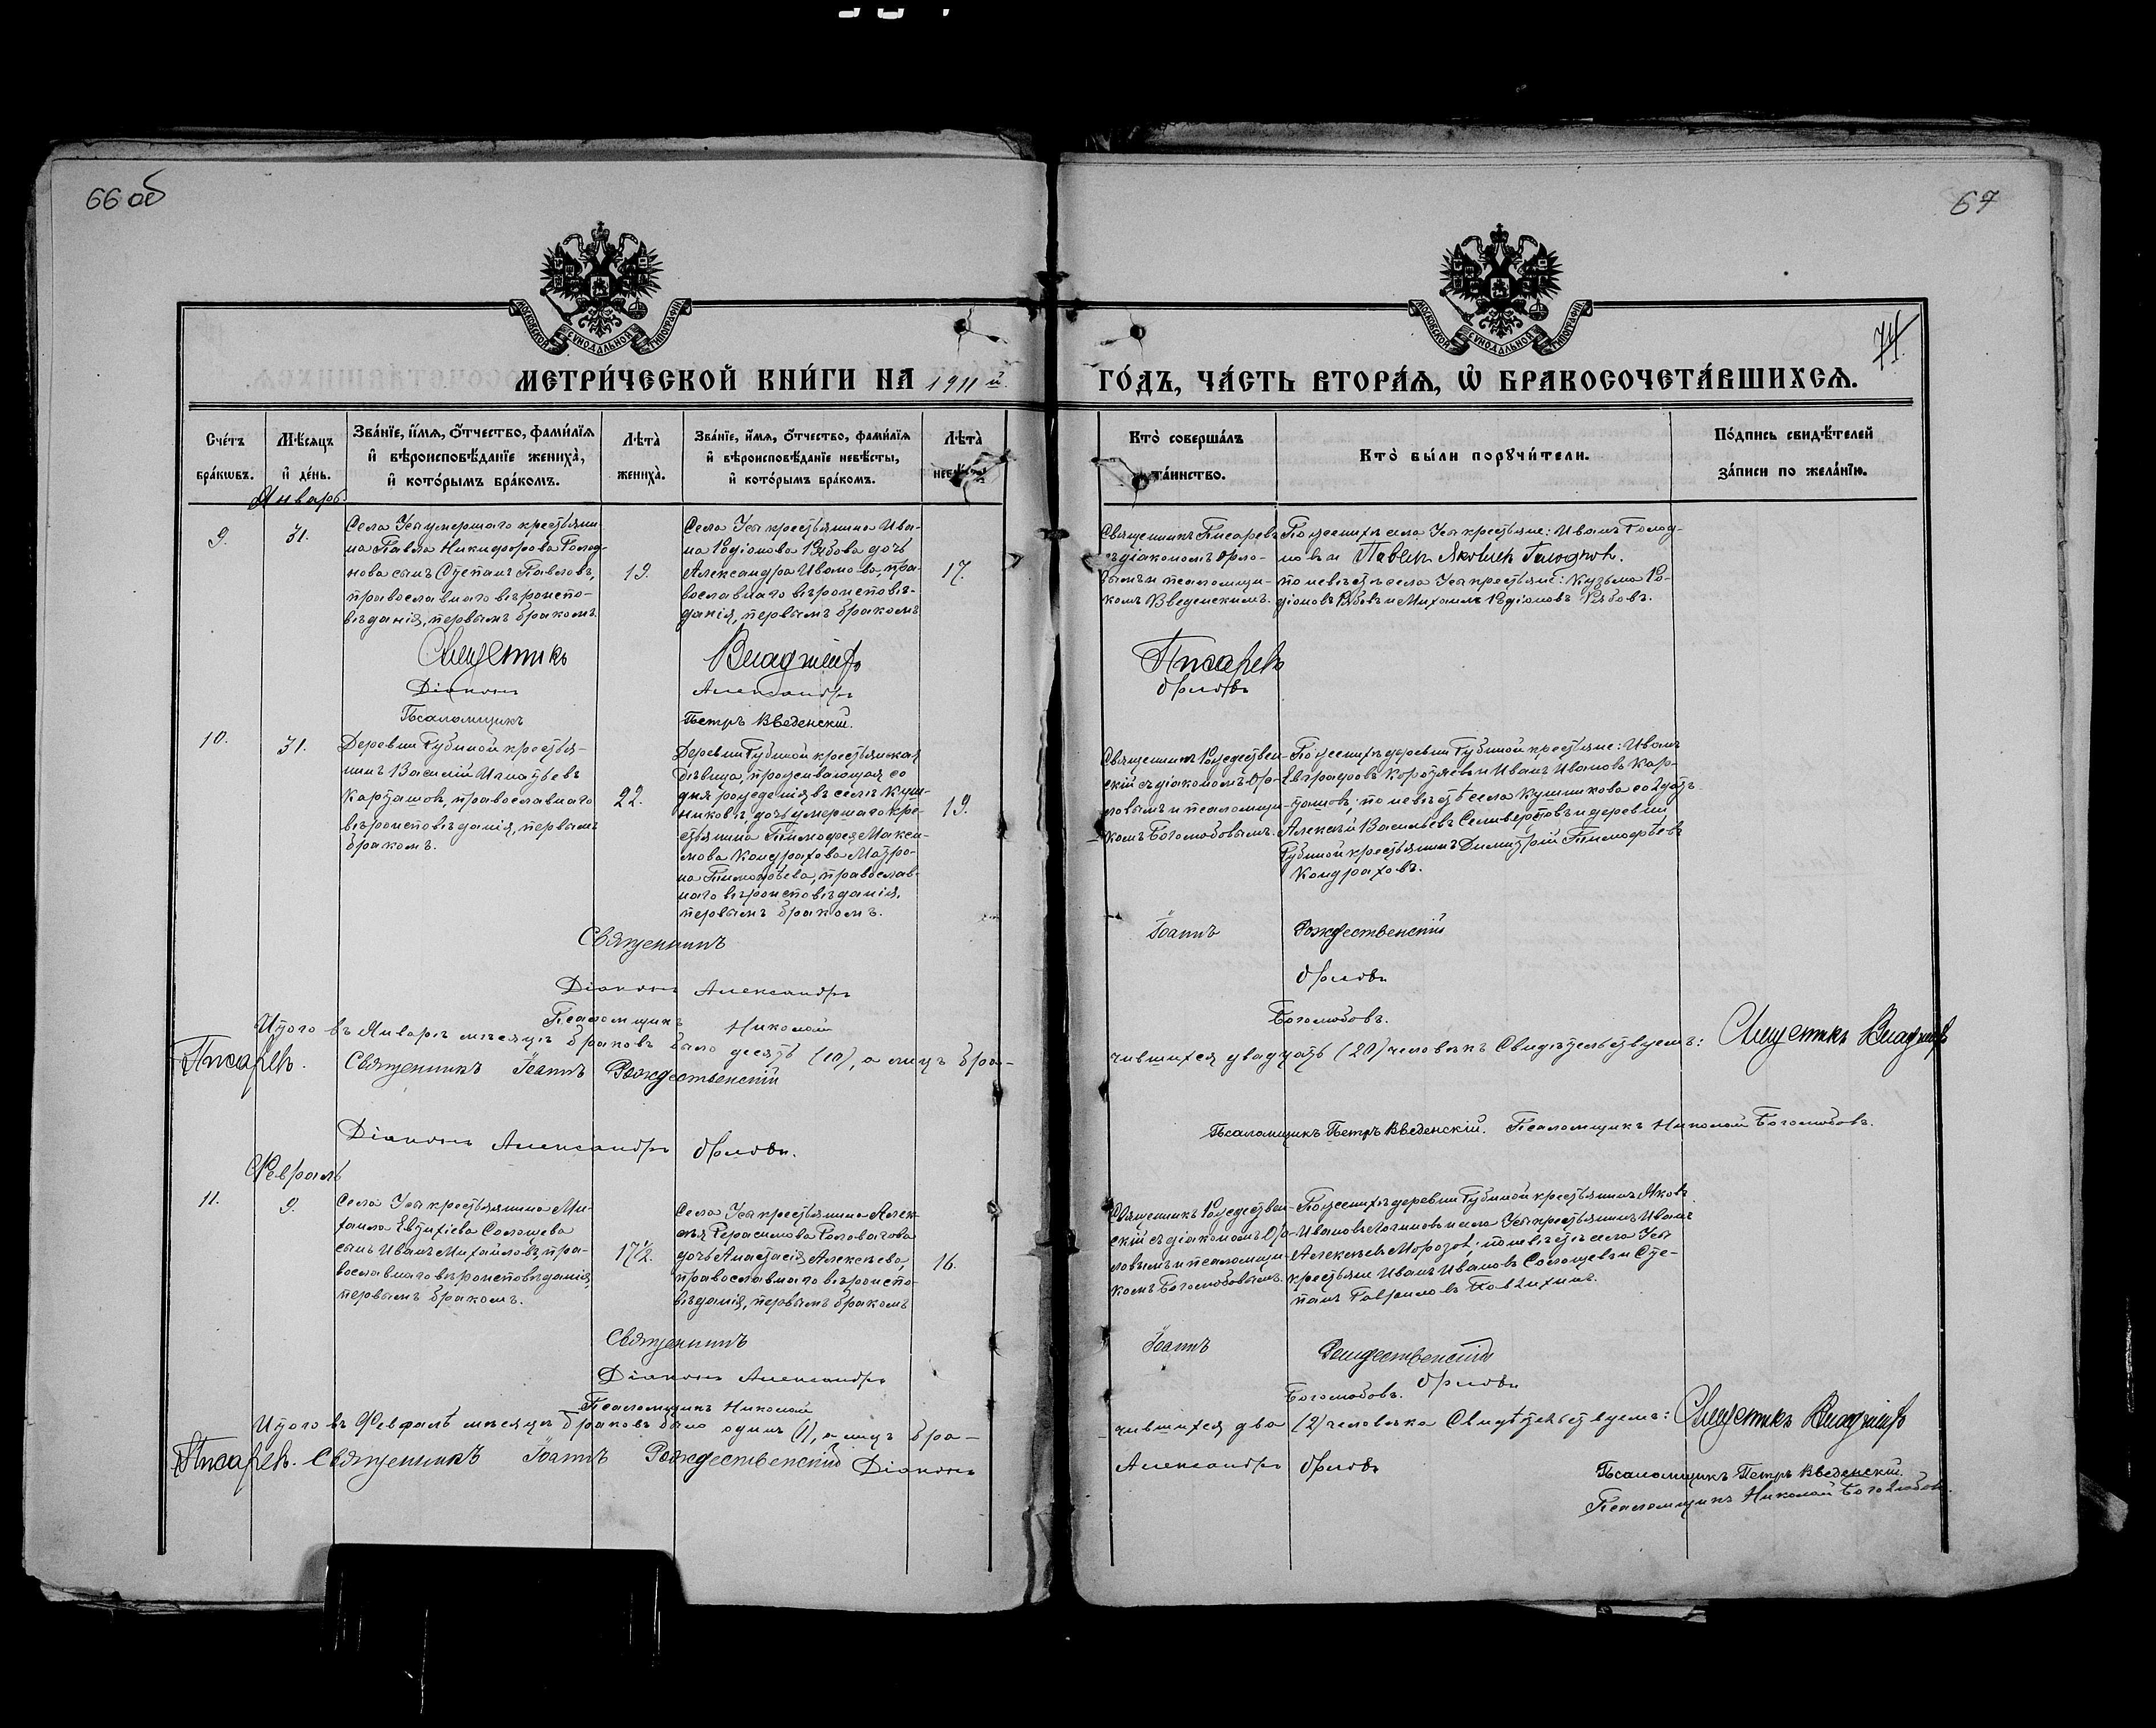 66 об
67
МОСКОВСКОЙ СѴНОДАЛЬНОЙ ТИПОГРАФІИ
МОСКОВСКОЙ СѴНОДАЛЬНОЙ ТИПОГРАФІИ
74
МЕТРИ́ЧЕСКОЙ КНИ́ГИ НА 1911 й
ГО́ДЪ, ЧА́СТЬ ВТОРА́Я, Ѡ БРАКОСОЧЕТА́ВШИХСЯ.
Сче́тъ бра́кѡвъ.
Мѣ́сяцъ и де́нь.
Зва́нїе, и́мя, ѻ́тчество, фами́лїя
и вѣроисповѣ́данїе жениха̀,
и кото́рымъ бра́комъ.
Лѣта̀ жениха̀.
Зва́нїе, и́мя, ѻ́тчество, фами́лїя
и вѣроисповѣ́данїе невѣ́сты,
и кото́рымъ бра́комъ.
Лѣта̀
Кто̀ соверша́лъ та́инство.
Кто̀ бы́ли порꙋчи́тели.
По́дпись свидѣ́телей
за́писи по жела́нїю.
Январь
9.
31.
Села Усы умершаго крестьяни-
на Павла Никифорова Голод-
нова сынъ Степанъ Павловъ,
православнаго вѣроиспо-
вѣданія, первымъ бракомъ.
19.
Села Усы крестьянина Ива-
на Родіонова Рябова дочь
Александра Иванова, пра-
вославнаго вѣроисповѣ-
данія, первымъ бракомъ
17.
Священникъ Писаревъ
съ діакономъ Орло-
вымъ и псаломщи-
комъ Введенскимъ.
По женихѣ села Усы крестьяне: Иванъ Голод-
новъ и Павелъ Яковлевъ Голодновъ.
по невѣстѣ села Усы крестьяне: Кузьма Ро-
діоновъ Рябовъ и Михаилъ Родіоновъ Рябовъ.
Священникъ Владиміръ Писаревъ
Діаконъ Александръ Орловъ
Псаломщикъ Петръ Введенскій.
10.
31.
Деревни Губиной крестья-
нинъ Василій Игнатьевъ
Карташовъ, православнаго
вѣроисповѣданія, первымъ
бракомъ.
22.
Деревни Губиной крестьянская
дѣвица, проживающая со
дня рожденія въ селѣ Куш-
никовѣ, дочь умершаго кре-
стьянина Тимофея Макси-
мова Кондрахова Матро-
на Тимофеева, православ-
наго вѣроисповѣданія,
первымъ бракомъ.
19.
Священникъ Рождествен-
скій съ діакономъ Ор-
ловымъ и псаломщи-
комъ Боголюбовымъ.
По женихѣ деревни Губиной крестьяне: Иванъ
Евграфовъ Коротяевъ и Иванъ Ивановъ Кар-
ташовъ; по невѣстѣ села Кушникова солдатъ
Алексѣй Васильевъ Селиверстовъ и деревни
Губиной крестьянинъ Димитрій Тимофѣевъ
Кондраховъ.
Священникъ Іоаннъ Рождественскій
Діаконъ Александръ Орловъ
Псаломщикъ Николай Боголюбовъ.
Итого въ Январѣ мѣсяцѣ браковъ было десять (10), а лицъ бра-
чившихся двадцать (20) человѣкъ Свидѣтельствуемъ: Священникъ Владиміръ
Писаревъ. Священникъ Іоаннъ Рождественскій
Діаконъ Александръ Орловъ.
Псаломщикъ Петръ Введенскій. Псаломщикъ Николай Боголюбовъ.
Февраль
11.
9.
Села Усы крестьянина Ми-
хаила Евтихіева Солощева
сынъ Иванъ Михайловъ, пра-
вославнаго вѣроисповѣданія,
первымъ бракомъ.
17½.
Села Усы крестьянина Алек-
сѣя Герасимова Головачова
дочь Анастасія Алексѣева,
православнаго вѣроиспо-
вѣданія, первымъ бракомъ
16.
Священникъ Рождествен-
скій съ діакономъ Ор-
ловымъ и псаломщи-
комъ Боголюбовымъ.
По женихѣ деревни Губиной крестьянинъ Яковъ
Ивановъ Логиновъ и села Усы крестьянинъ Иванъ
Алексѣевъ Морозовъ; по невѣстѣ села Усы
крестьяне Иванъ Ивановъ Солощевъ и Сте-
панъ Гавриловъ
Священникъ Іоаннъ Рождественскій
Діаконъ Александръ Орловъ
Псаломщикъ Николай Боголюбовъ.
Итого въ Февралѣ мѣсяцѣ браковъ было одинъ (1), а лицъ бра-
чившихся два (2) человѣка Свидѣтельствуемъ: Священникъ Владиміръ
Писаревъ. Священникъ Іоаннъ Рождественскій Діаконъ
Александръ Орловъ
Псаломщикъ Петръ Введенскій.
Псаломщикъ Николай Боголюбовъ.